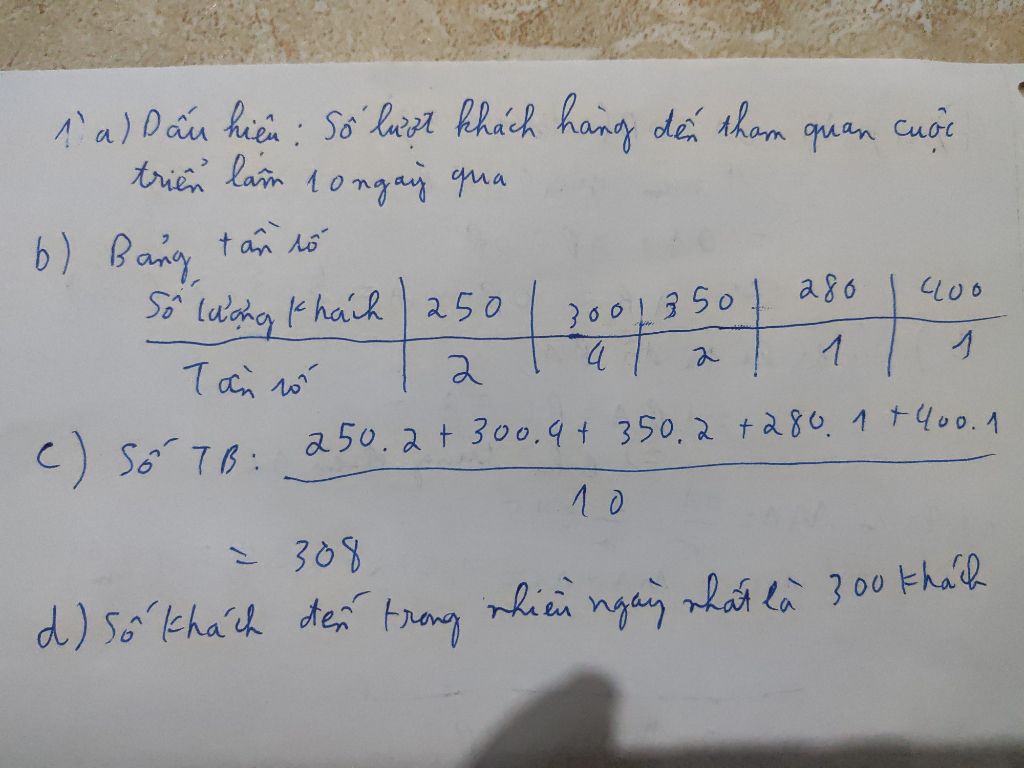 1) a) Dấu hiệu: Số lượt khách hàng đến tham quan cuộc
triển lãm 10 ngày qua
b) Bảng tần số
Số lượng khách | 250 | 300 | 350 | 280 | 400
Tần số | 2 | 4 | 2 | 1 | 1
c) Số TB: 250.2 + 300.4 + 350.2 + 280.1 + 400.1
10
= 308
d) Số khách đến trong nhiều ngày nhất là 300 khách